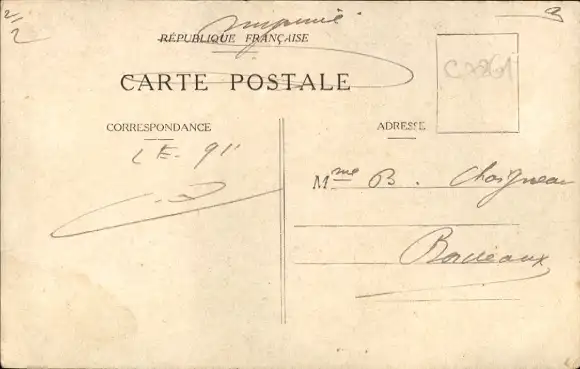 Imprimé
RÉPUBLIQUE FRANÇAISE
CARTE POSTALE
CORRESPONDANCE
ADRESSE
Mme B. Chaigneau
Bordeaux